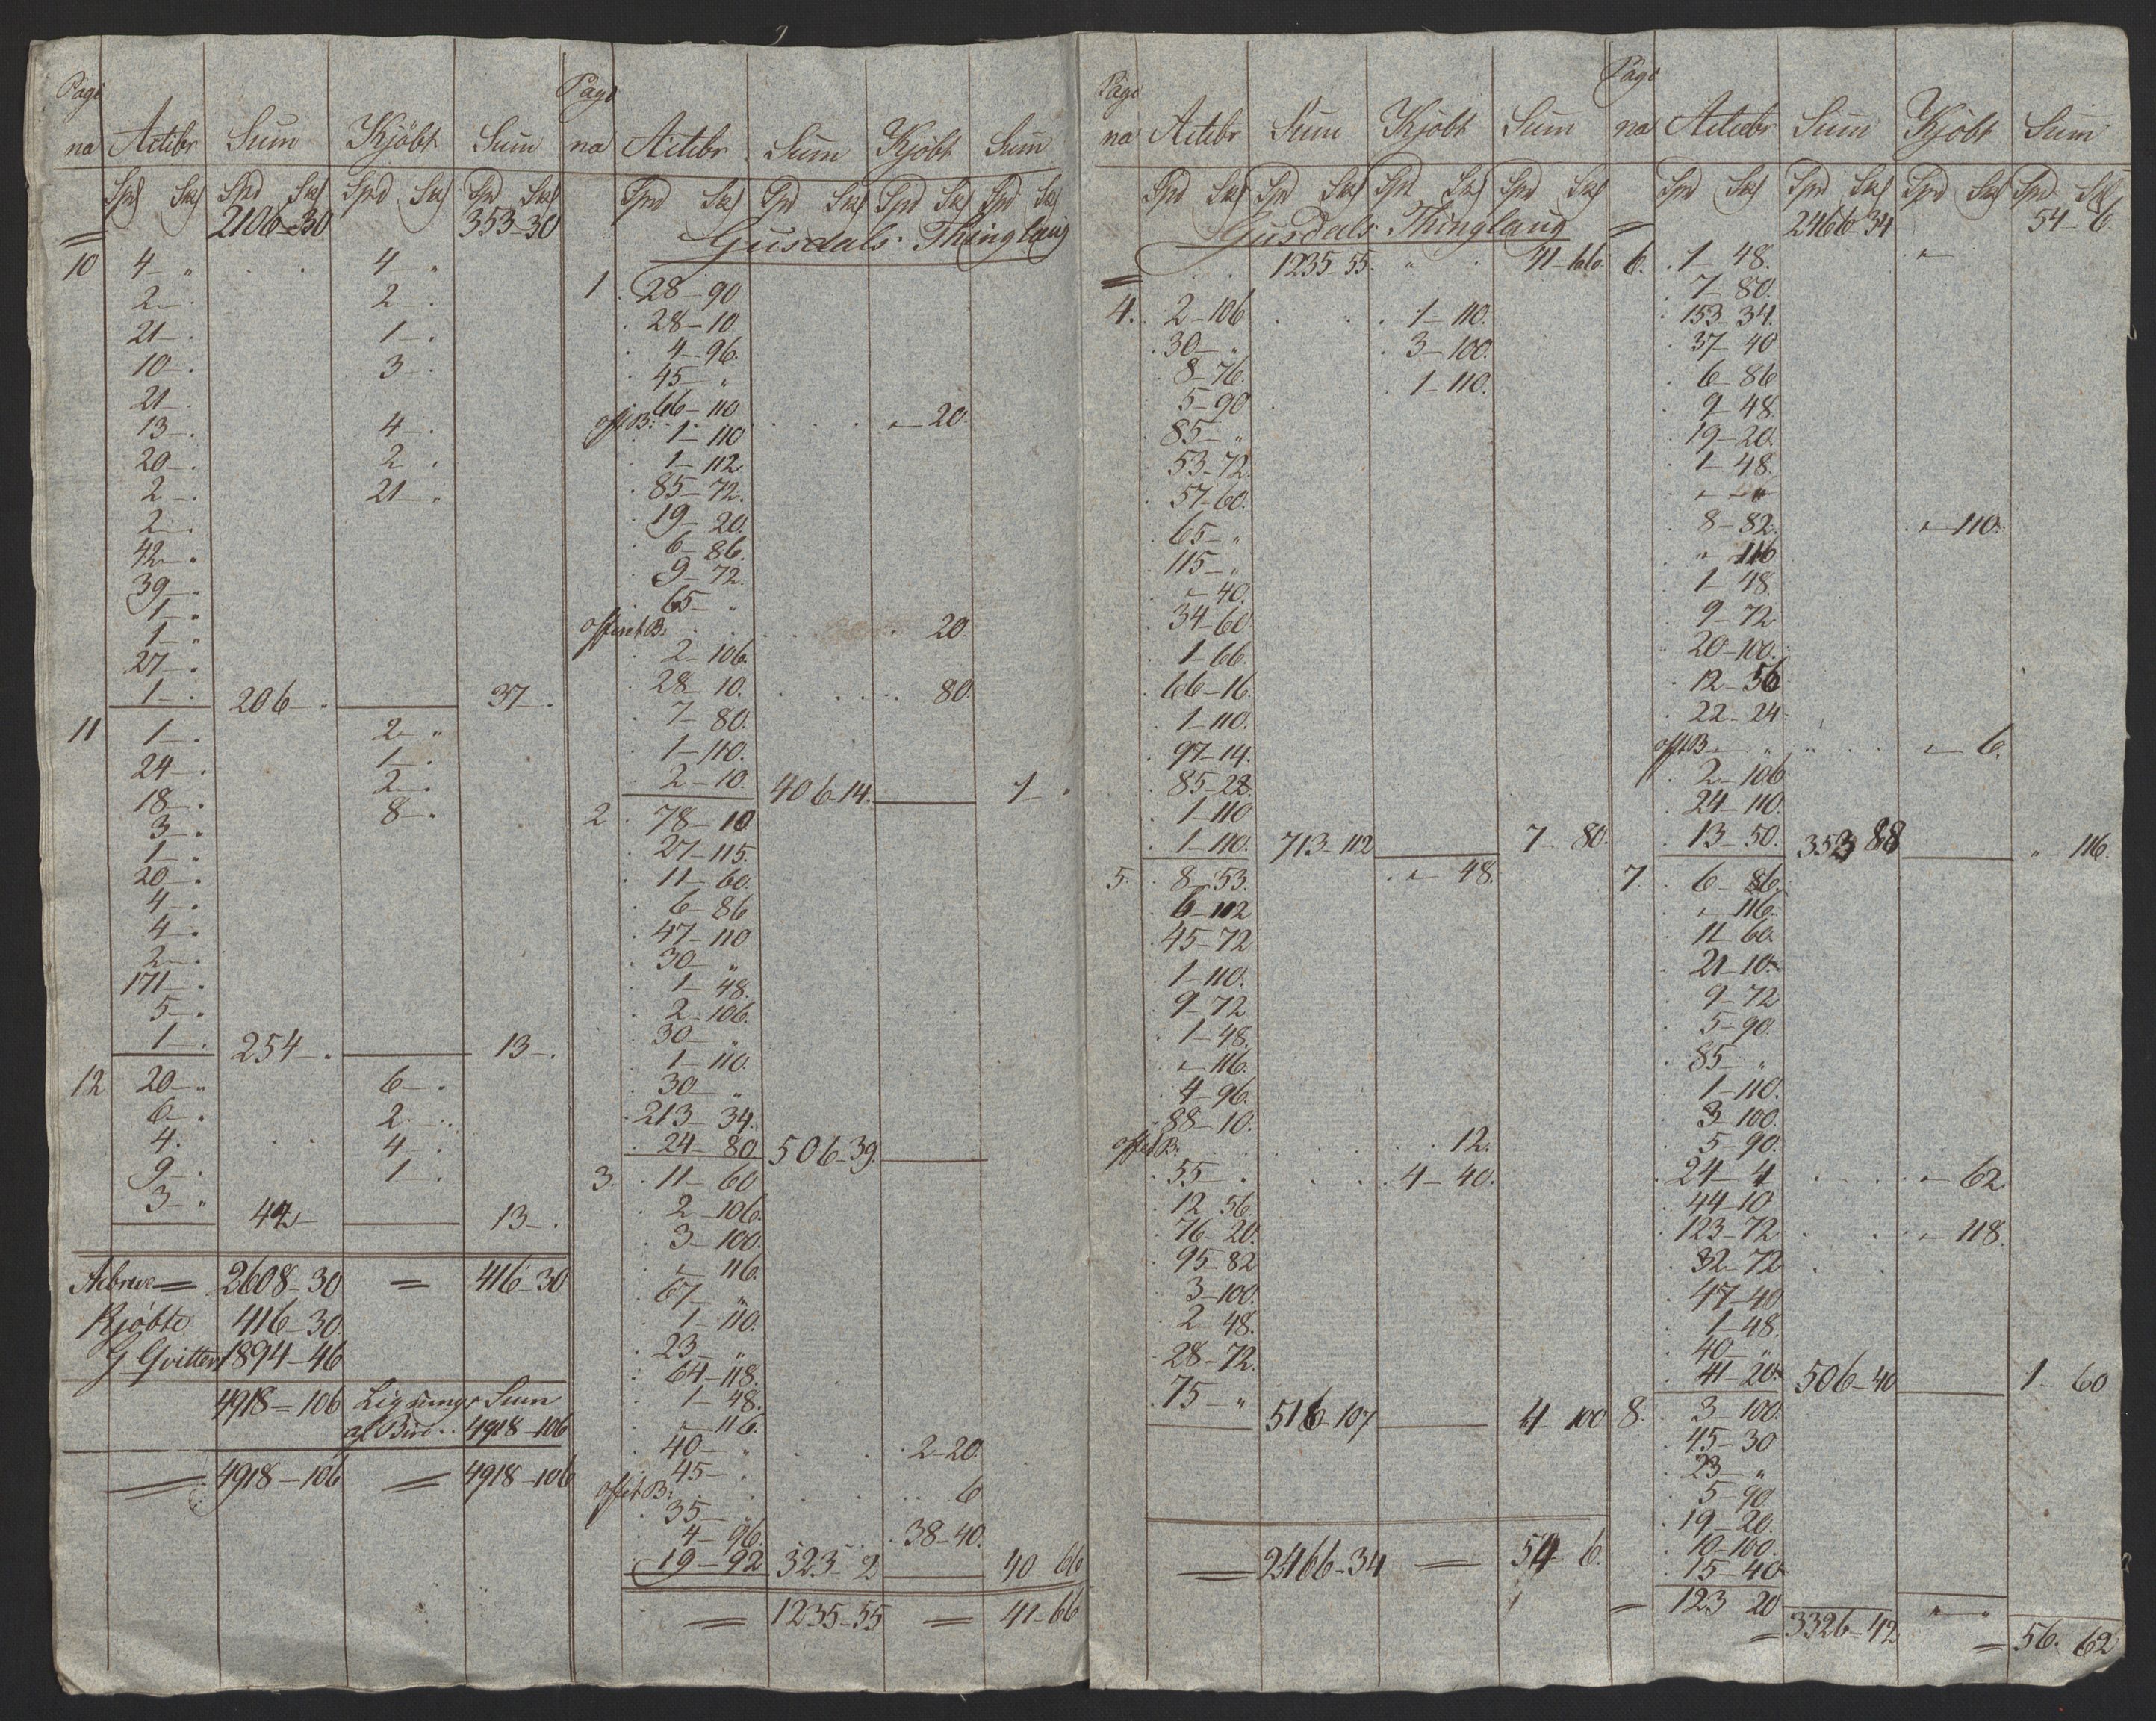 Pagi
na Actiebr Sum Kjöbt Sum
Spd Sk Spd Sk Spd Sk Spd Sk
2106-30 353-30
10 4 - " 4 - "
2 - . 2 - .
21 - . 1 - .
10 - . 3 - .
21 - .
13 - . 4 - .
20 - . 2 - .
2 - . 21 - .
2 - .
42 - .
39 - .
1 - "
1 - "
27 - .
1 - . 206 - . 37 - .
11 1 - . 2 - "
24 - . 1 - .
18 - . 2 - .
3 - . 8 - .
1 - "
20 - .
4 - .
4 - .
2 - .
171 - .
5 - .
1 - . 254 - . 13 - .
12 20 - " 6 - .
6 - . 2 - .
4 . 4 .
9 - . 1 - .
3 - " 42 - 13 - .
2608-30 = 416-30
Kjöbte 416-30.
G Qvitter 1894-46
4918=106 Lignings Sum
af Biri .. 4918-106
4918-106 = 4918-106
Pagi
na Actiebr Sum Kjöbt Sum
Spd Sk Spd Sk Spd Sk Spd Sk
Gusdals Thinglaug
1 . 28-90
. 28-10
. 4-96.
. 45 - "
. 66-110
offt B: . . . - 20.
1-110
. 1-112
. 85-72.
. 19-20.
. 6-86.
. 9-72.
. 65 - "
offent B: . . . 20.
. 2-106.
. 28-10. . . . 80.
. 7-80.
. 1-110.
. 2-10. 406-14. 1 - "
2 . 78-10
. 27-115.
. 11-60.
. 6-86
. 47-110
. 30 - "
. 1-48.
. 2-106.
. 30 - "
. 1-110.
. 30 - "
. 213-34.
. 24-80 506-39.
3. . 11-60
. 2-106.
. 3-100.
. - 116.
. 67 - "
. 1-110.
. 23 - "
. 64-118.
. 1-48.
. - 116.
. 40 - " . . 2-20.
. 45 - .
offt B: . . . 6
. 35 - .
. 4-96. . 38-40.
19-92 323-2 40 66
= 1235-55 = 41-66
Pagi
na Actiebr Sum Kjöbt Sum
Spd Sk Spd Sk Spd Sk Spd Sk
Gusdals Thinglaug
= . . 1235-55. " . 41-66.
4. . 2-106 . . . 1-110.
. 30 - " . 3-100.
. 8-76. . 1-110.
. 5-90
. 85 - "
. 53-72.
. 57-60.
. 65 - "
. 115 - "
. - 40.
. 34-60
. 1-66.
. 66-16.
. 1-110.
. 97-14.
. 85-22.
. 1-110
. 1-110. 713-112 7-80.
5. . 8-53. . - 48.
. 6-112
. 45-72
. 1-110.
. 9-72
. 1-48.
. - 116.
. 4-96.
. 88-10.
offt B: . . . 12.
. 55 - . . . . 4-40.
. 12-56.
. 76-20.
. 95-82
. 3-100.
. 2-48.
. 28-72.
. 75 - " 516-107 4-100
= 2466-34 = 54-6.
Pagi
na Actiebr Sum Kjöbt Sum
Spd Sk Spd Sk Spd Sk Spd Sk
= 2466-34 54-6
6. . 1-48.
. 7-80.
. 153-34.
. 37-40
. 6-86
. 9-48.
. 19-20.
. 1-48.
. 8-82. . - 110.
. " 116
. 1-48.
. 9-72
. 20-100.
. 12-56
. 22-24.
offt B . . . - 6.
. 2-106
. 24-110.
. 13-50. 353 88 " - 116.
7. . 6-86.
. - 116.
. 11-60.
. 21-10.
. 9-72
. 5-90.
. 85 - "
. 1-110.
. 3-100.
. 5-90.
. 24-4 . . . - 62.
. 44-10
. 123-72 . . - 118.
. 32-72
. 47-40
. 1-48.
. 40 - "
. 41-20. 506-40 1-60
8. . 3-100.
. 45-30
. 23 - "
. 5-90
. 19-20.
. 10-100.
. 15-40
= 123 20 " - "
= 3326-42 = 56. 62